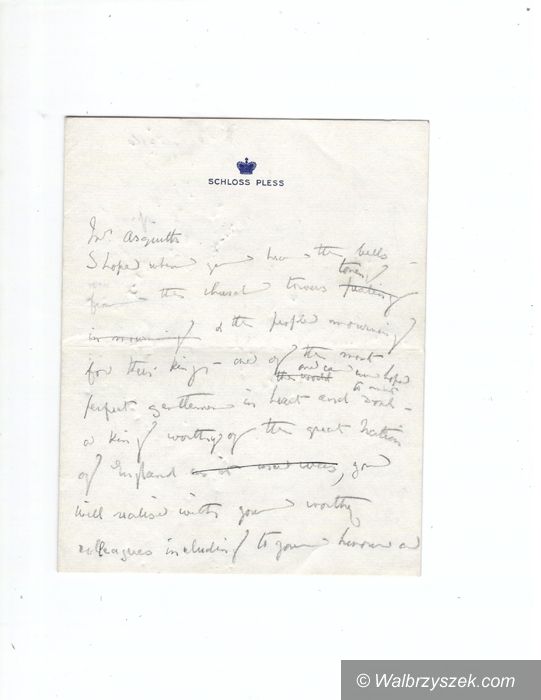 SCHLOSS PLESS
Mr. Asquith
I hope when you hear the bells -
toning
from the church towers pealing
in mourning & the people mourning
for their king - one of the most
one can ever hope
the world to meet
perfect gentlemen in heart and soul -
a King worthy of the great Nation
of England as it was, you
will realise with your worthy
colleagues including to your honour
© Walbrzyszek.com